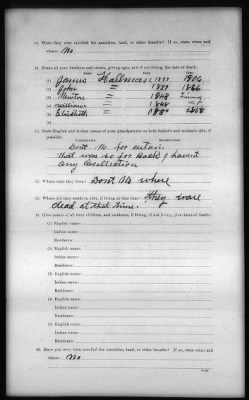 14. Were they ever enrolled for annuities, land, or other benefits? If so, state when and
where: No
15. Names of your brothers and sisters, giving ages, and if not living, the date of death:
(1) James Hallman 1906
(2) John " 1866
(3) Newton " 1848 Living
(4) William "
(5) Elizabeth " 1850 1858
16. State English and Indian names of your grandparents on both father's and mother's side, if
possible:
Dont No for certain
That was so far Back I havent
any Recollection
17. Where were they born? Dont No where
18. Where did they reside in 1851, if living at that time? They ware
dead at that time.
19. Give names of all their children, and residence, if living; if not living, give dates of deaths:
(1) English name:
Indian name:
Residence:
(2) English name:
Indian name:
Residence:
(3) English name:
Indian name:
Residence:
(4) English name:
Indian name:
Residence:
(5) English name:
Indian name:
Residence:
20. Have you ever been enrolled for annuities, land, or other benefits? If so, state when and
where: No